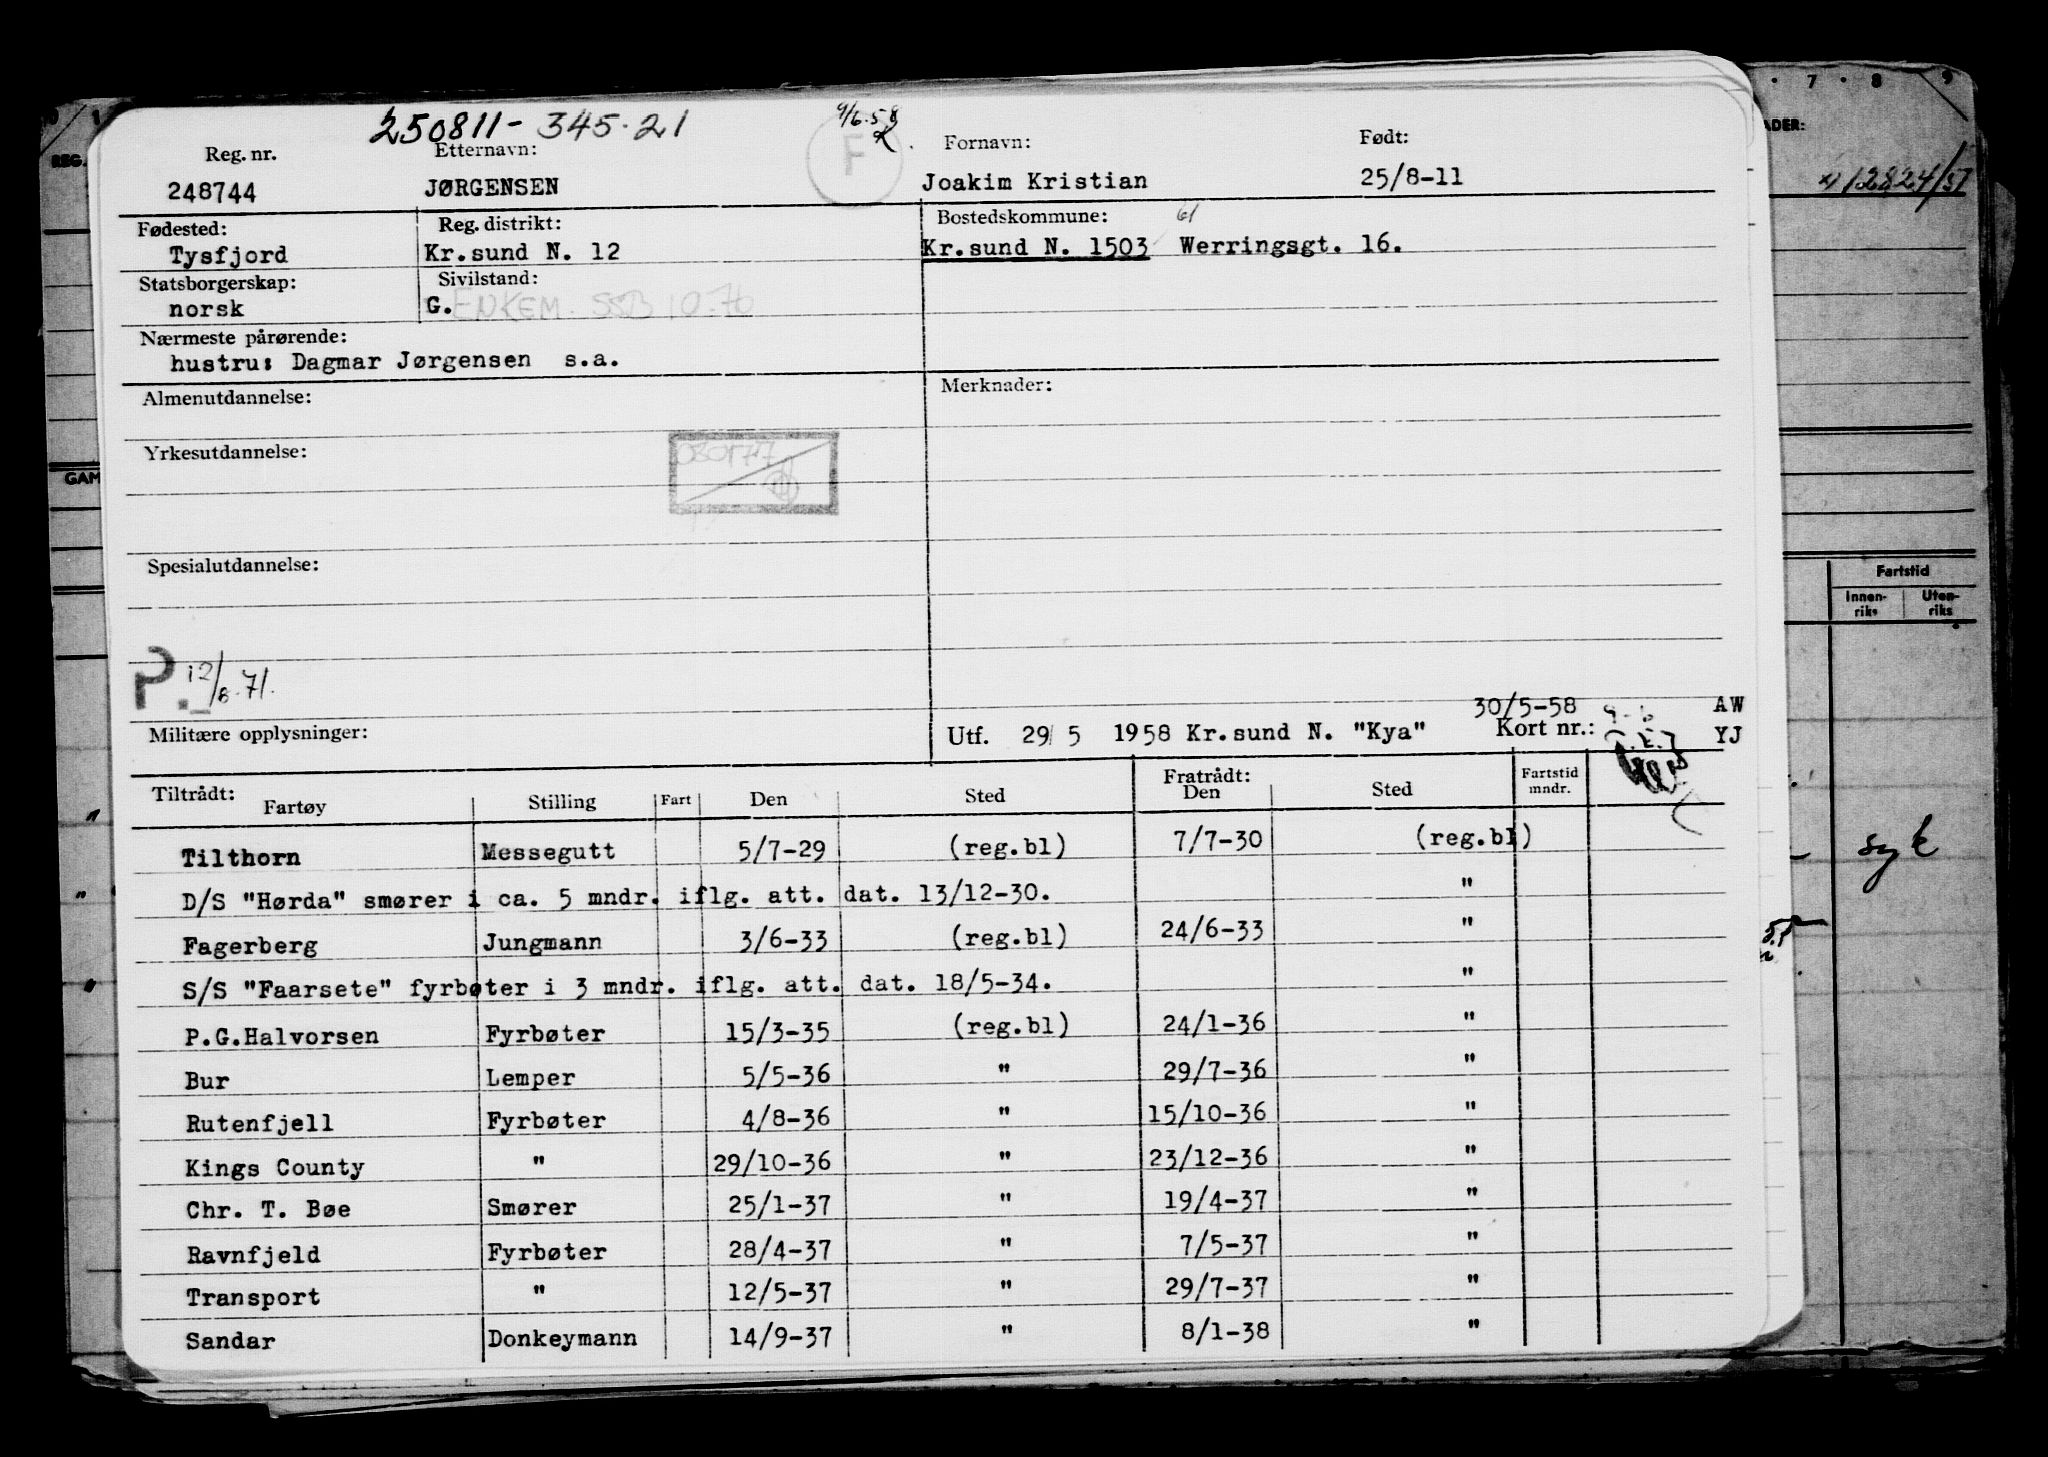 250811-345.21
9/6.58
F
Reg. nr. Etternavn: Fornavn: Født:
248744 JØRGENSEN Joakim Kristian 25/8-11
Fødested: Reg. distrikt: Bostedskommune: 61
Tysfjord Kr.sund N. 12 Kr.sund N. 1503 Werringsgt. 16.
Statsborgerskap: Sivilstand:
norsk G. ENKEM. SSB 10.76
Nærmeste pårørende:
hustru: Dagmar Jørgensen s.a.
Almenutdannelse: Merknader:
Yrkesutdannelse:
Spesialutdannelse:
P. 12/8.71.
30/5-58 AW
Militære opplysninger: Utf. 29/5 1958 Kr.sund N. "Kya" Kort nr.: YJ
Tiltrådt: Fartøy Stilling Fart Den Sted Fratrådt: Den Sted Fartstid mndr.
Tilthorn Messegutt 5/7-29 (reg.bl) 7/7-30 (reg.bl)
D/S "Hørda" smører i ca. 5 mndr. iflg. att. dat. 13/12-30. "
Fagerberg Jungmann 3/6-33 (reg.bl) 24/6-33 "
S/S "Faarsete" fyrbøter i 3 mndr. iflg. att. dat. 18/5-34. "
P.G.Halvorsen Fyrbøter 15/3-35 (reg.bl) 24/1-36 "
Bur Lemper 5/5-36 " 29/7-36 "
Rutenfjell Fyrbøter 4/8-36 " 15/10-36 "
Kings County " 29/10-36 " 23/12-36 "
Chr. T. Bøe Smører 25/1-37 " 19/4-37 "
Ravnfjeld Fyrbøter 28/4-37 " 7/5-37 "
Transport " 12/5-37 " 29/7-37 "
Sandar Donkeymann 14/9-37 " 8/1-38 "
REG.
GAM
7 8 9
ADER:
12824/57
Fartstid
Innen-
riks
Uten-
riks
syk